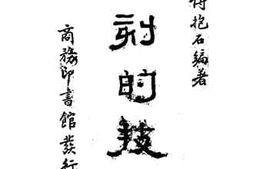 傅抱石編著
刻的技
商務印書館發行